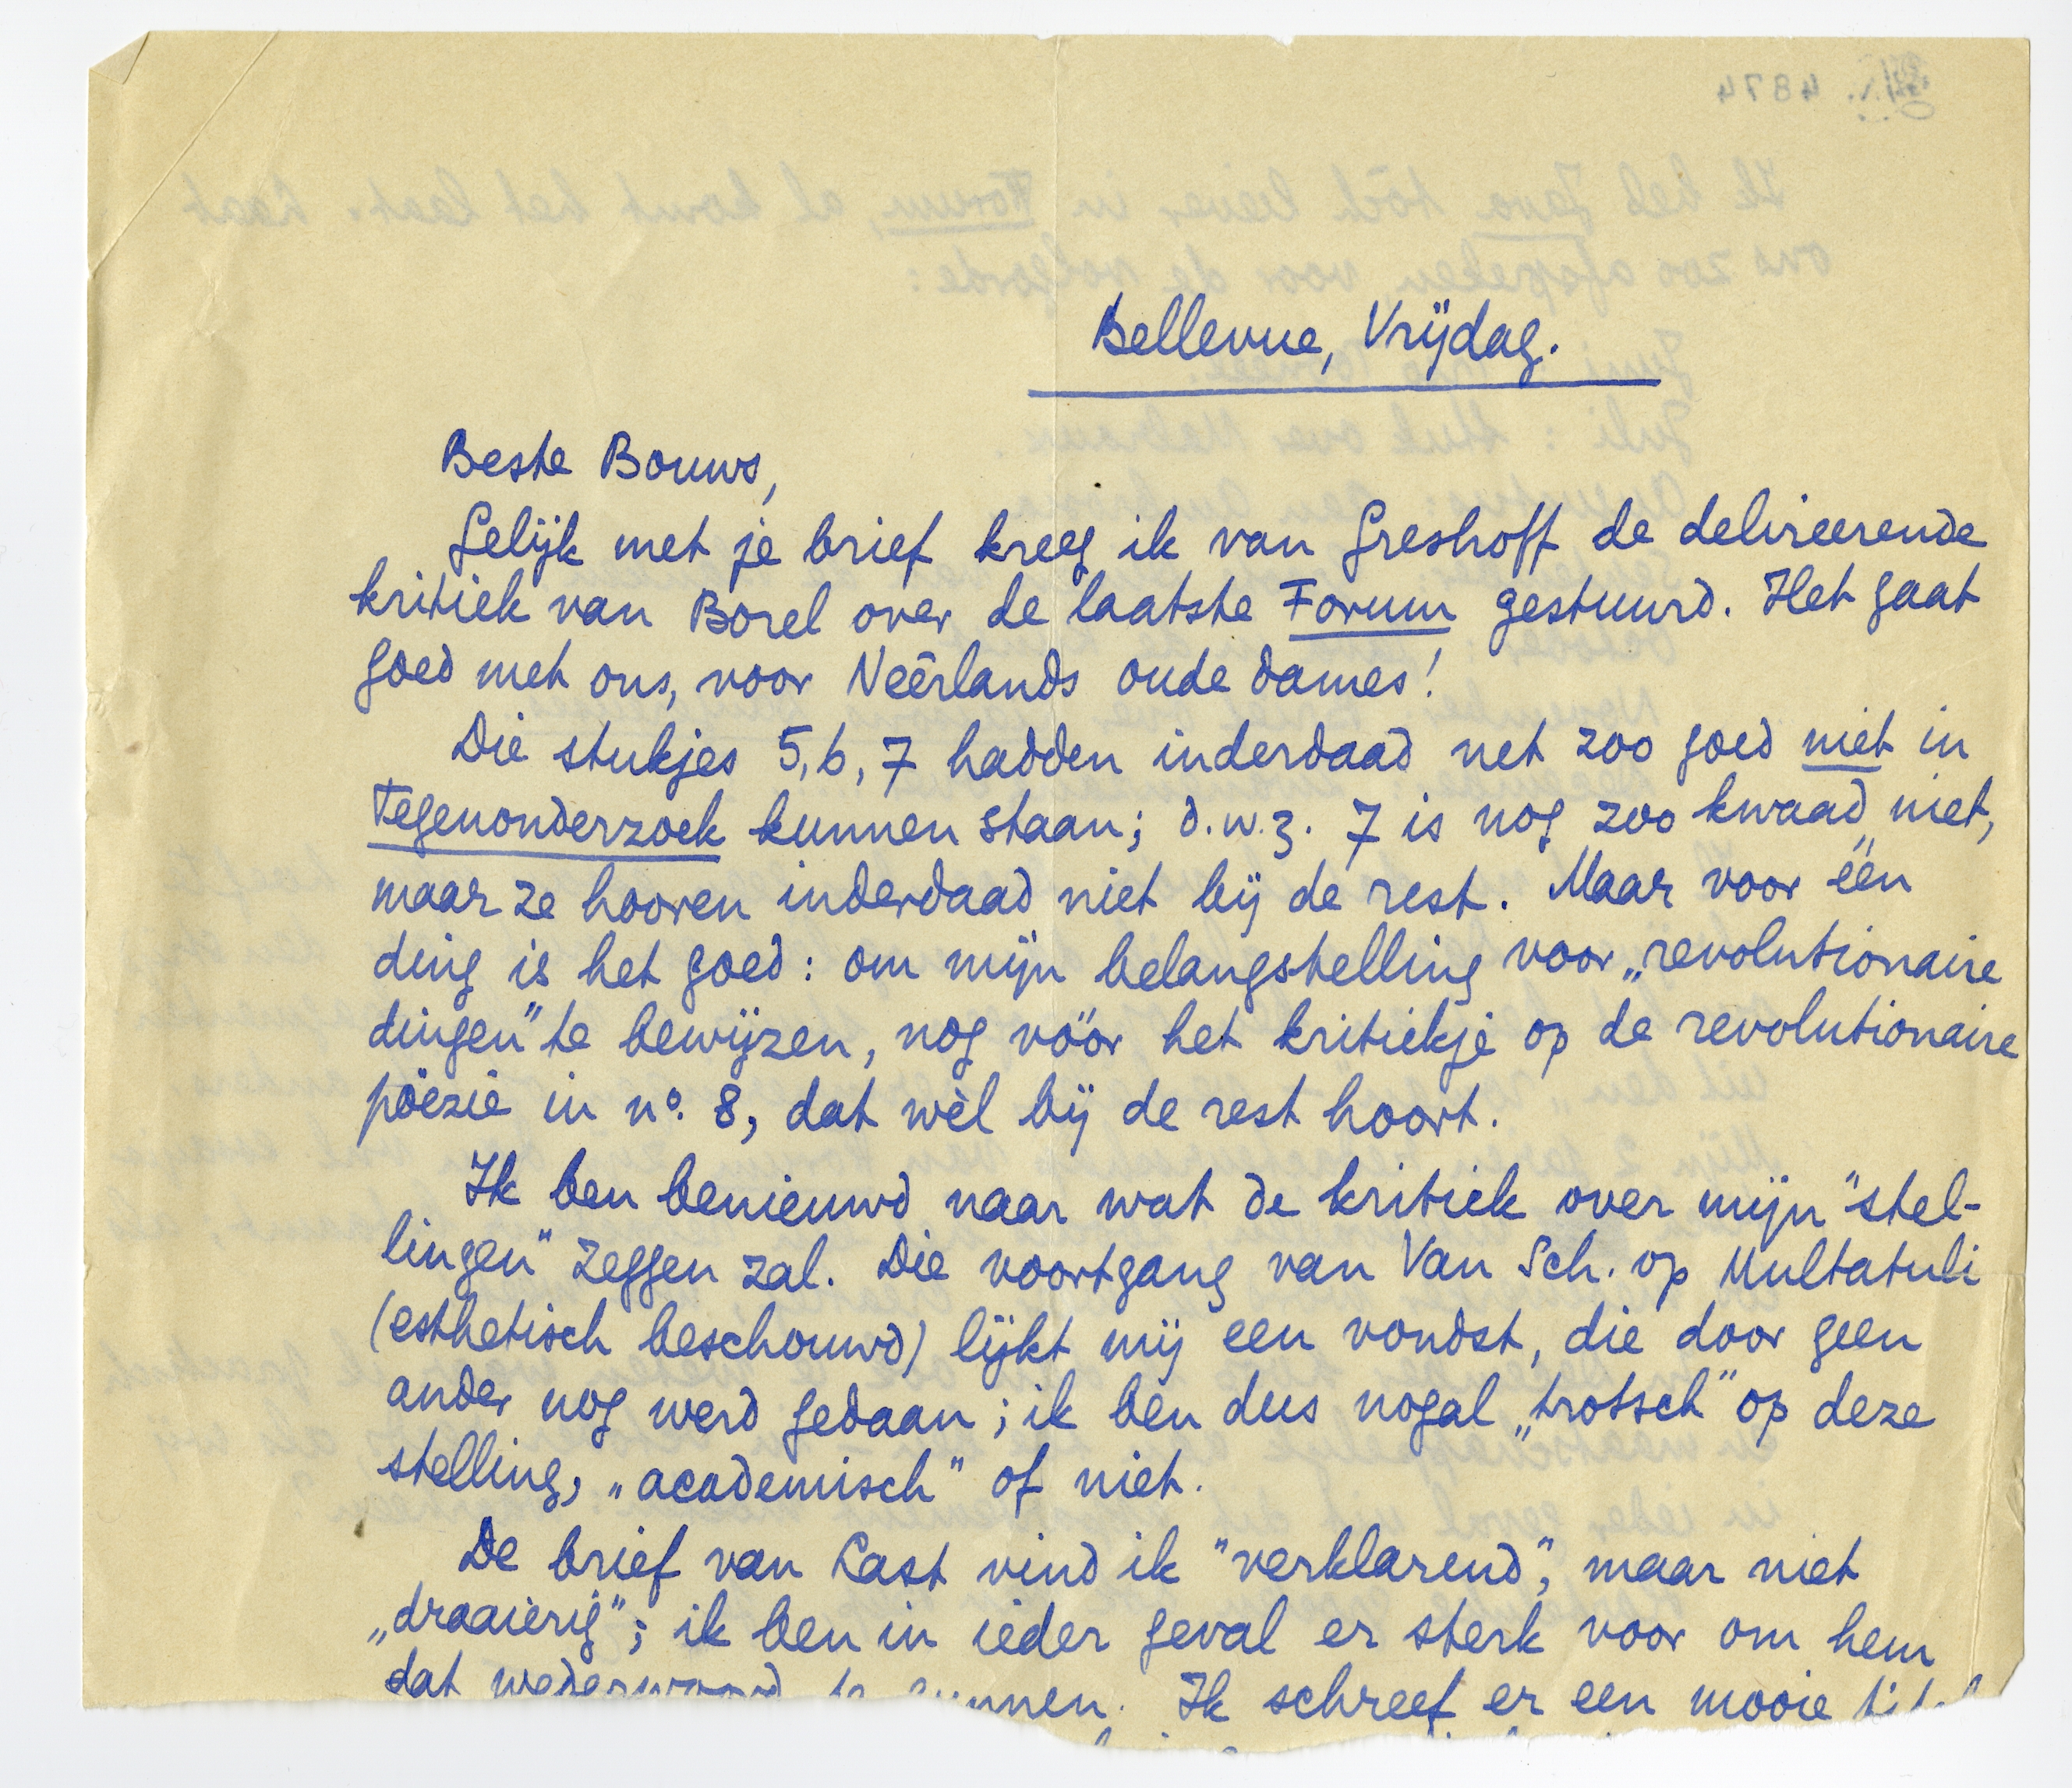 4874
Bellevue, Vrijdag.
Beste Bouws,
Gelijk met je brief kreeg ik van Greshoff de delireerende
kritiek van Borel over de laatste Forum gestuurd. Het gaat
goed met ons, voor Neêrlands oude dames!
Die stukjes 5, 6, 7 hadden inderdaad net zoo goed niet in
Tegenonderzoek kunnen staan; d.w.z. 7 is nog zoo kwaad niet,
maar ze hooren inderdaad niet bij de rest. Maar voor één
ding is het goed: om mijn belangstelling voor „revolutionaire
dingen" te bewijzen, nog vóór het kritiekje op de revolutionaire
poëzie in nº. 8, dat wèl bij de rest hoort.
Ik ben benieuwd naar wat de kritiek over mijn "stel-
lingen" zeggen zal. Die voortgang van Van Sch. op Multatuli
(esthetisch beschouwd) lijkt mij een vondst, die door geen
ander nog werd gedaan; ik ben dus nogal „trotsch" op deze
stelling, „academisch" of niet.
De brief van Last vind ik "verklarend", maar niet
„draaierig"; ik ben in ieder geval er sterk voor om hem
dat wederwoord te gunnen. Ik schreef er een mooie